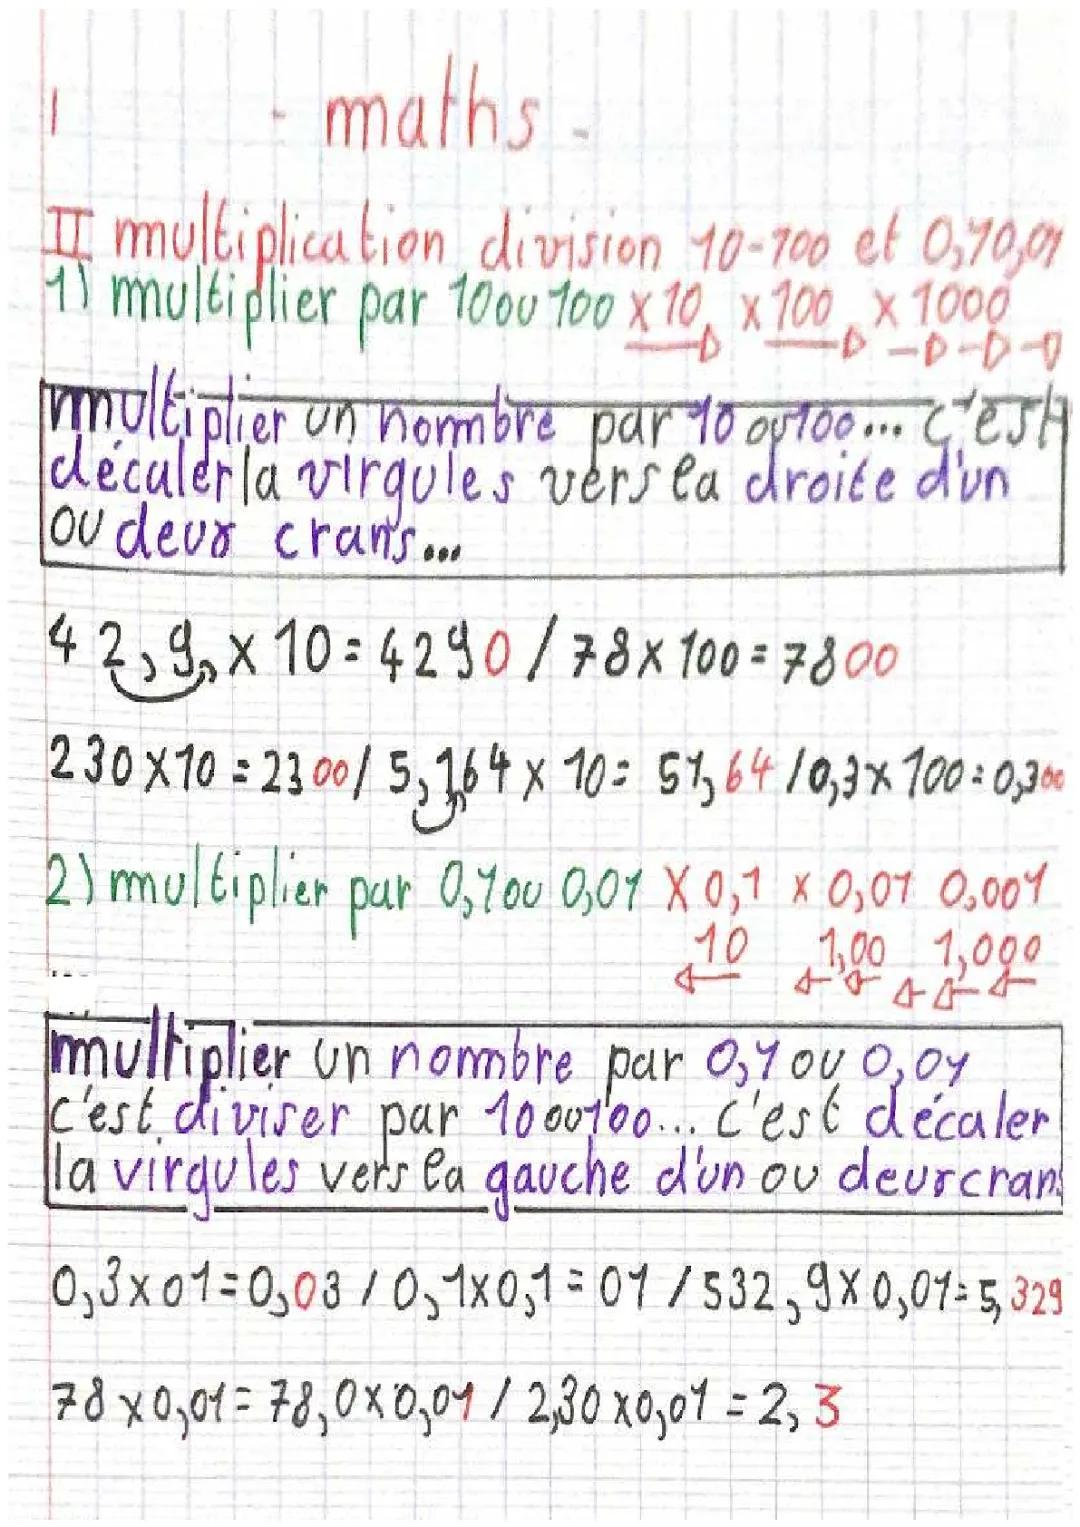 - maths -
II multiplication division 10-100 et 0,10,01
1) multiplier par 10ou 100 x 10 x 100 x 1000
multiplier un nombre par 10 ou 100... c'est
décaler la virgules vers la droite d'un
ou deux crans...
42,9, x 10 = 4290 / 78 x 100 = 7800
230 x 10 = 2300 / 5,164 x 10 = 51,64 / 0,3 x 100 = 0,300
2) multiplier par 0,1 ou 0,01 x 0,1 x 0,01 0,001
10 1,00 1,000
...
multiplier un nombre par 0,1 ou 0,01
c'est diviser par 10 ou 100... c'est décaler
la virgules vers la gauche d'un ou deux crans
0,3 x 01 = 0,03 / 0,1 x 0,1 = 01 / 532,9 x 0,01 = 5,329
78 x 0,01 = 78,0 x 0,01 / 2,30 x 0,01 = 2,3